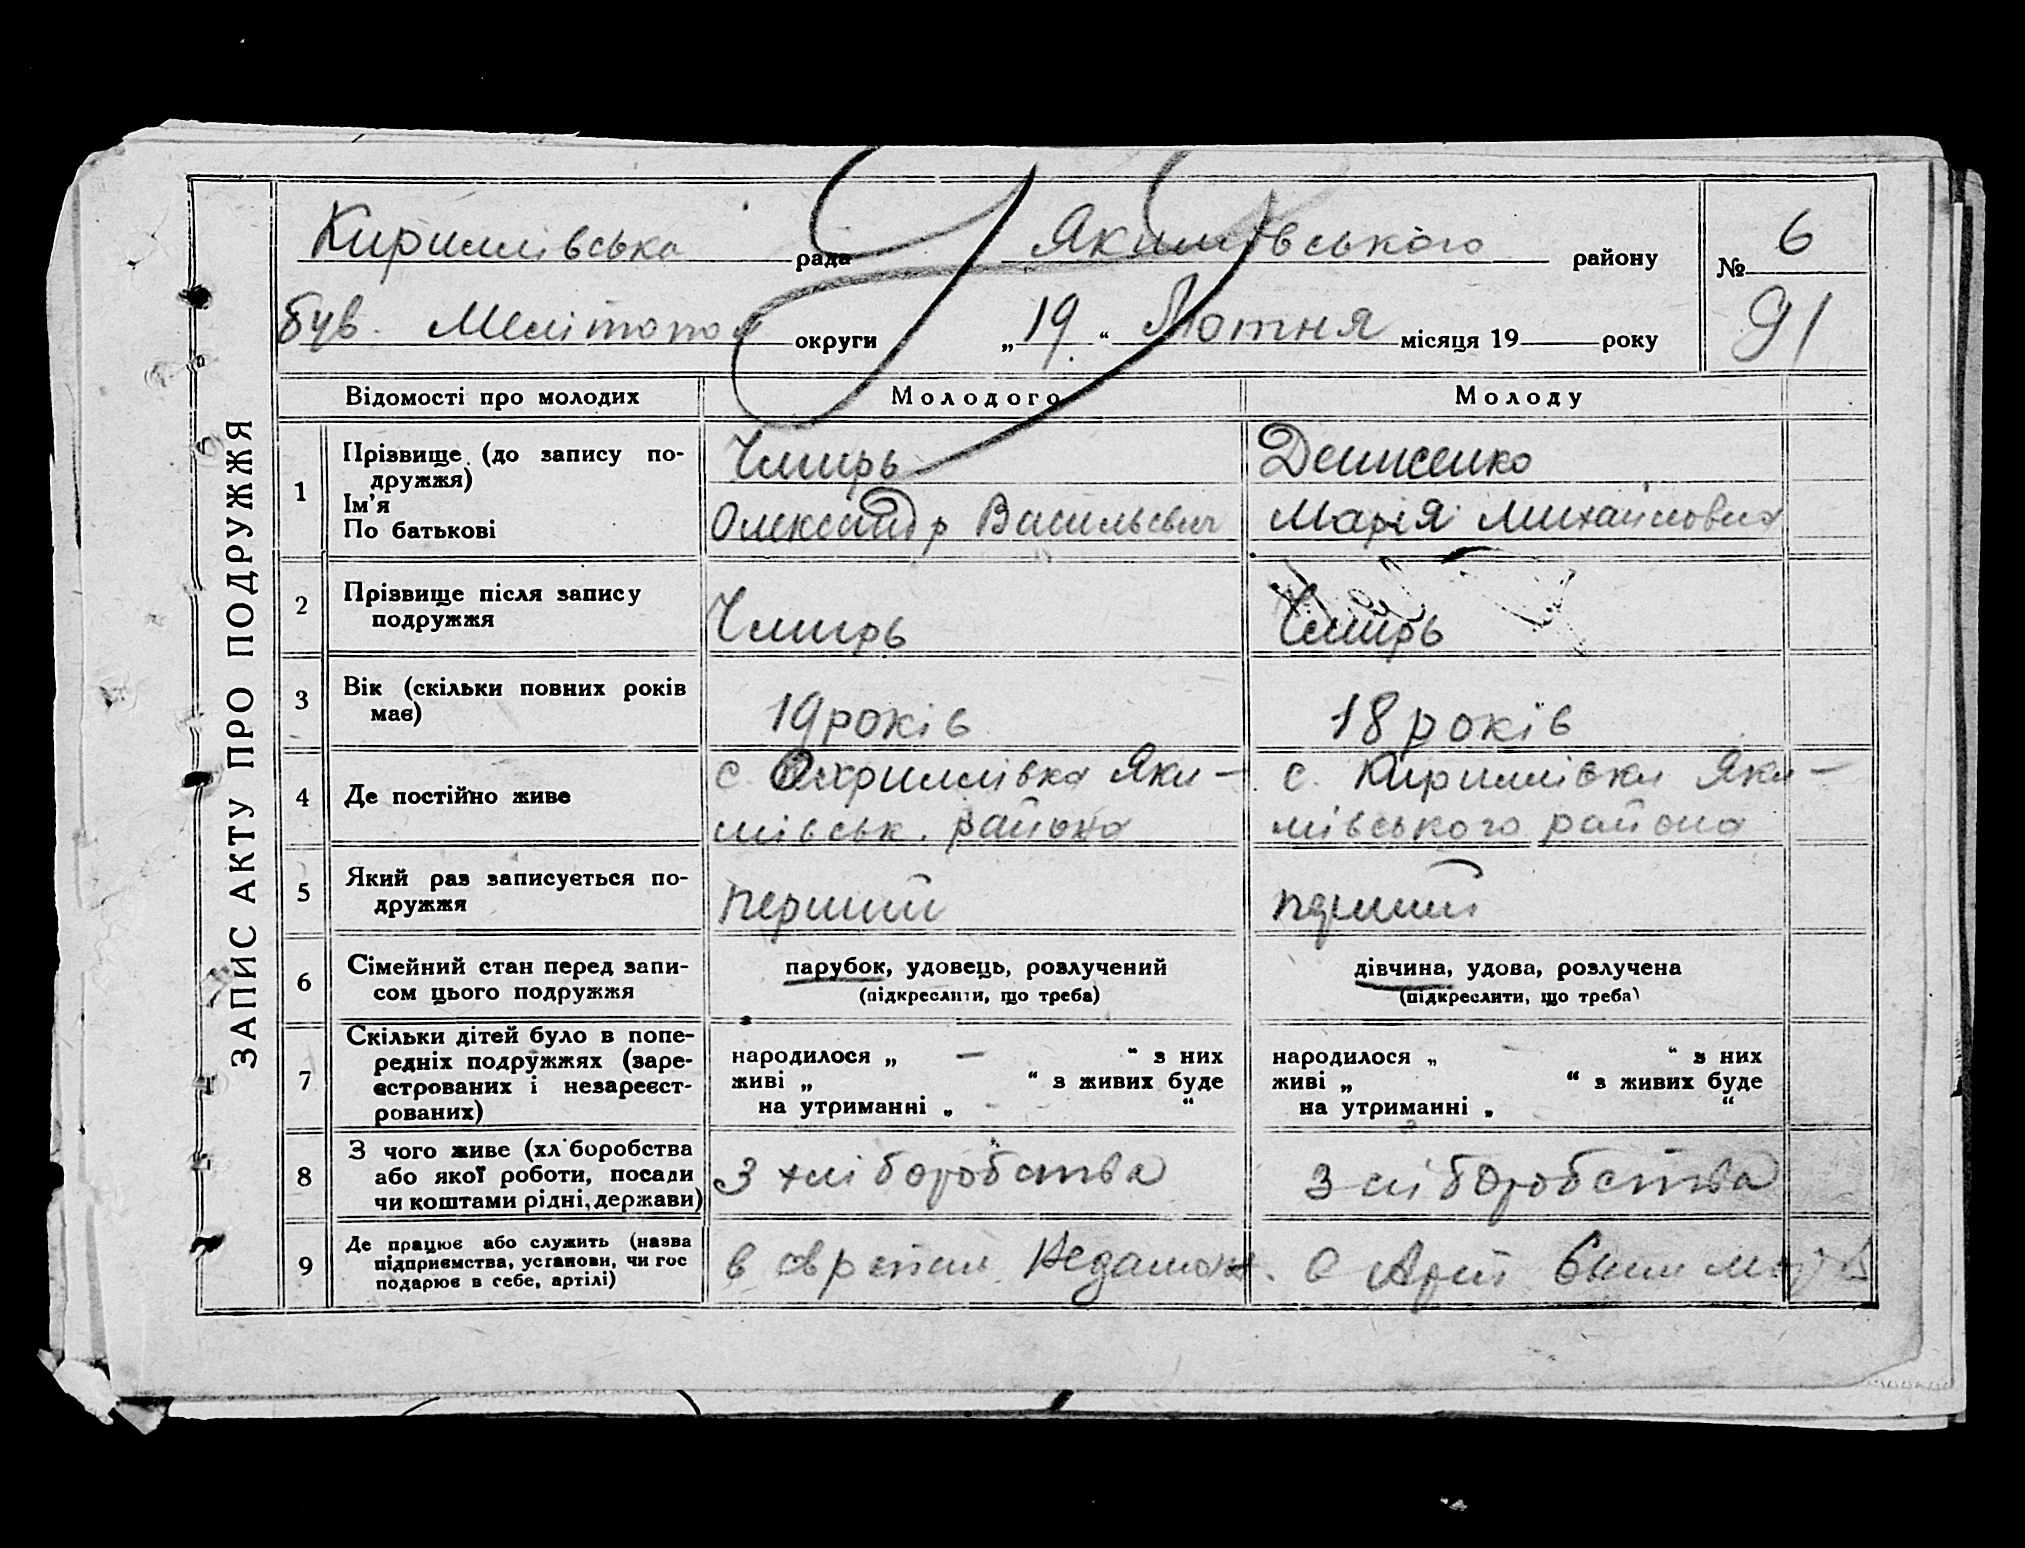 ЗАПИС АКТУ ПРО ПОДРУЖЖЯ
Кирилівська рада Якимівського району № 6
був. Мелітопол округи „19“ Лютня місяця 19 року 91
Відомості про молодих Молодого Молоду
1 Прізвище (до запису по-
дружжя)
Ім’я
По батькові
Чмирь Денисенко
Олександр Васильевич Марія Михайловна
2 Прізвище після запису
подружжя
Чмирь Чмирь
3 Вік (скільки повних років
має)
19 років 18 років
4 Де постійно живе
с. Охримівка Яки- с. Кирилівки Яки-
мівськ. района мівського района
5 Який раз записується по-
дружжя
перший перший
6 Сімейний стан перед запи-
сом цього подружжя
парубок, удовець, розлучений дівчина, удова, розлучена
(підкреслити, що треба) (підкреслити, що треба)
7 Скільки дітей було в попе-
редніх подружжях (заре-
єстрованих і незареєст-
рованих)
народилося „ — “ з них народилося „ - “ з них
живі „ “ з живих буде живі „ “ з живих буде
на утриманні „ - “ на утриманні „ “
8 З чого живе (хліборобства
або якої роботи, посади
чи коштами рідні, держави)
З хліборобства З хліборобства
9 Де працює або служить (назва
підприємства, установи, чи гос
подарює в себе, артілі)
в